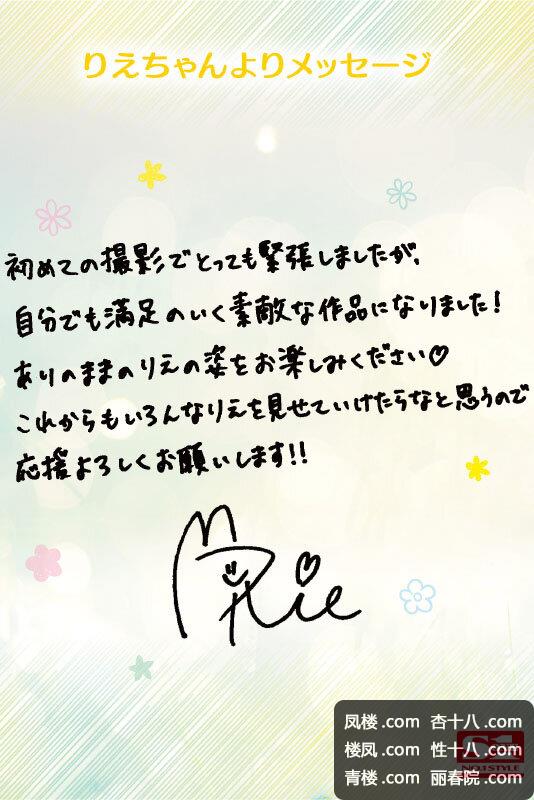 りえちゃんよりメッセージ
初めての撮影でとっても緊張しましたが、
自分でも満足のいく素敵な作品になりました！
ありのままのりえの姿をお楽しみください♡
これからもいろんなりえを見せていけたらなと思うので
応援よろしくお願いします!!
Rie
凤楼.com 杏十八.com
楼凤.com 性十八.com
青楼.com 丽春院.com
S1
NO.1 STYLE